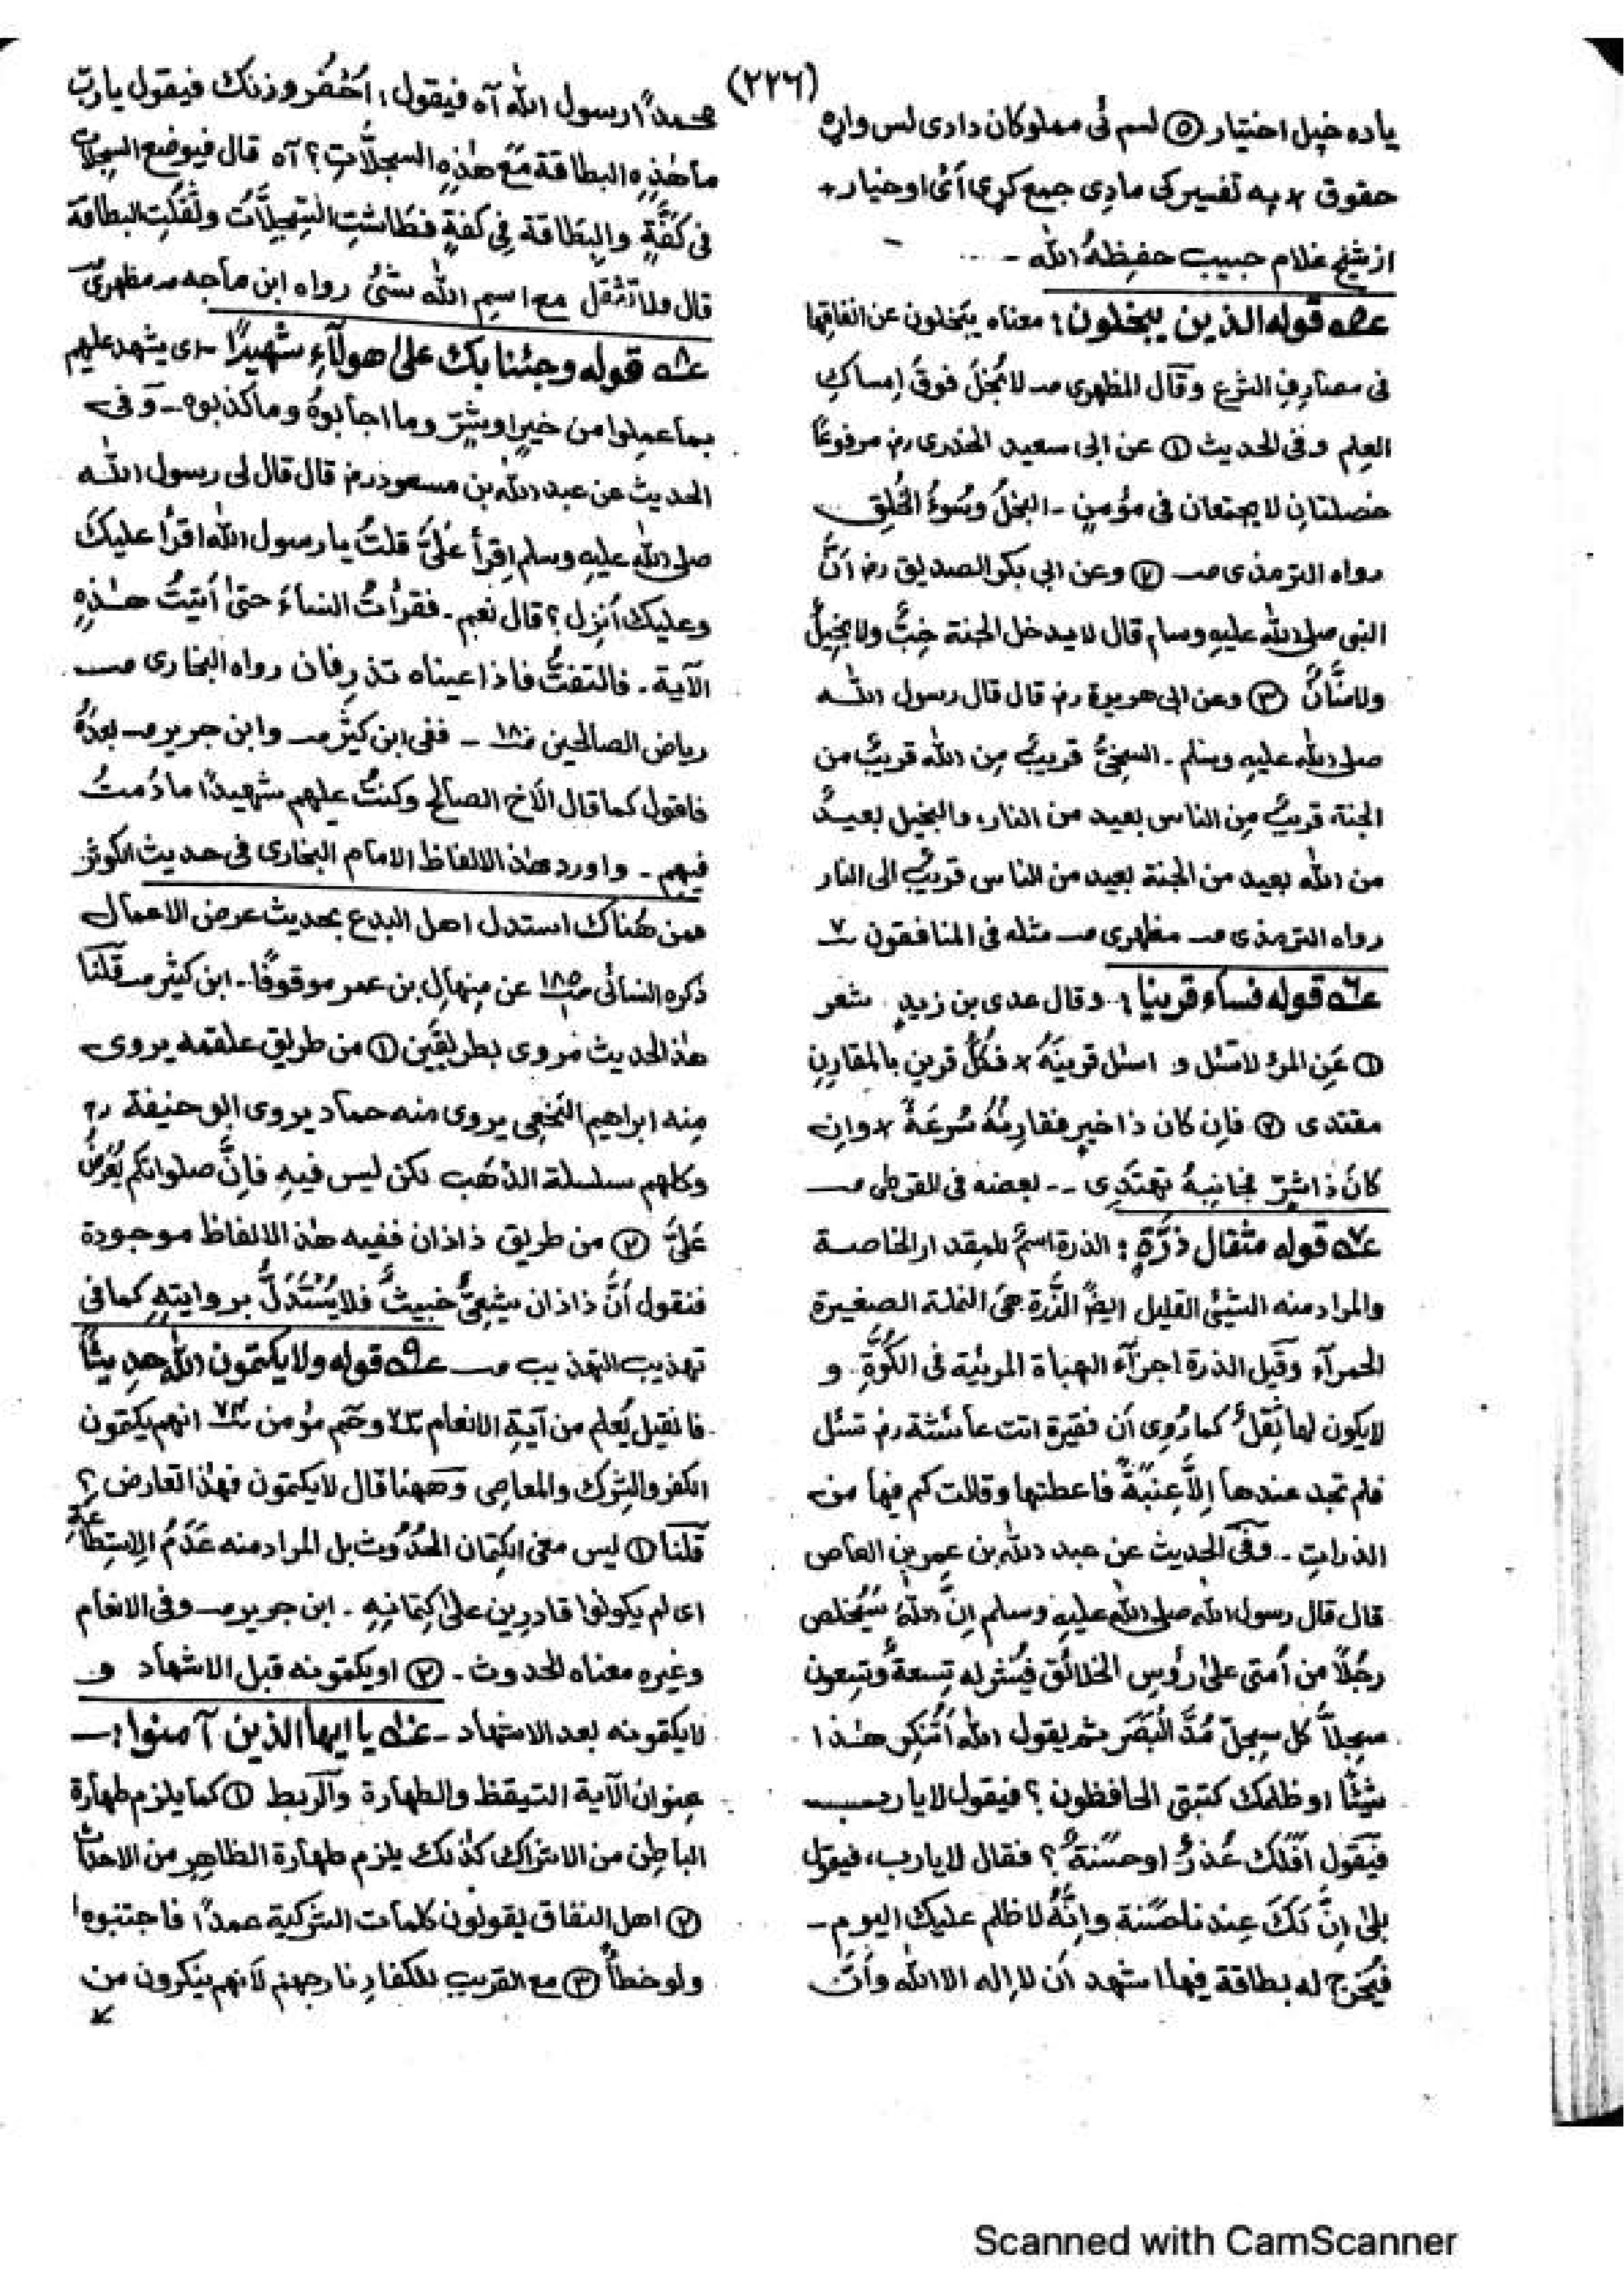 (٢٢٦)
ياده خپل اختيار ⑤ لسم ئى مملوكان دادى لس واړه
حقوق لا په تفسير كى مادى جمع كړى أئ اوخيار +
از شيخ غلام حبيب حفيظهُ الله -
عـ٥ـه قوله الذين يبخلون: معناه يبخلون عن انفاقها
فى مصارف الشرع وقال المظهرى صـ لا بُخلَ فوقَ اِمساكِ
العِلم وفى الحديث ① عن ابى سعيد الخدرى رض مرفوعًا
خصلتانِ لا يجتمعان فى مؤمنٍ - البخلُ وسُوءُ الخُلِق
رواه الترمذى صـ ② وعن ابى بكر الصديق رض أنَّ
النبى صلى الله عليهِ وسلم قال لا يدخل الجنة خِبٌّ ولا بخيلٌ
ولا منَّانٌ ③ وعن ابى هريرة رض قال قال رسول الله
صلى الله عليهِ وسلم - السخىُّ قريبٌ مِن الله قريبٌ من
الجنة قريبٌ مِن الناس بعيد من النار، والبخيل بعيدٌ
من الله بعيد من الجنة بعيد من الناس قريبٌ الى النار
رواه الترمذى صـ مظهرى صـ مثله فى المنافقون ٧
عـ٦ـه قوله فساء قرينا: وقال عدى بن زيدٍ شعر
① عَنِ المرْ لا تسْئل و اسئل قرينَهُ × فكلُّ قرينٍ بالمقارِنِ
مقتدى ② فاِن كان ذا خيرٍ فقارِنهُ سُرعَةً × واِن
كانَ ذا شرٍّ فجانِبهُ تهتَدِى -- بعضه فى القرطبى صـ
عـ٧ـه قوله مثقال ذرَّةٍ: الذرة اسمٌ للمِقدار الخاصة
والمراد منه الشيئ القليل ايضً الذَّرة هى النملة الصغيرة
الحمرآء وقيل الذرة اجزآء الهباة المرئية فى الكُوَّةِ و
لايكون لها ثِقلٌ كما رُوِى أن فقيرة اتت عائشة رض تسئل
فلم تجد عندها اِلَّا عِنَبَةً فاعطتها وقالت كم فيها من
الذراتِ - وفى الحديث عن عبد الله بن عمرِ بنِ العاص
قال قال رسول الله صلى الله عليهِ وسلم اِنَّ اللهَ سَيُخلص
رجُلًا من اُمتى على رؤسِ الخلائق فيُنشر له تِسعةٌ وتسعون
سِجِلًّا كل سِجلٍّ مُدَّ الُبَصَرِ ثم يقول الله أتُنكِر هٰذا
شيئًا او ظلمك كتبتى الحافظون؟ فيقول لا يا رب
فيقول افلك عُذرٌ اوحَسنةٌ؟ فقال لا يا رب، فيقول
بلى اِنَّ لكَ عِندنا حَسنة وانّهُ لا ظلم عليك اليوم -
فيُخرج له بطاقة فيها اشهد أن لا اِله الا الله وأنَّ
محمدًا رسول الله آه فيقول، أحضُر وزنك فيقول يا ربِّ
ما هٰذِهِ البطاقة مَعَ هٰذِهِ السجلَّاتِ؟ آه قال فيوضع السجلات
فى كَفَّةٍ والبطاقة فِى كفةٍ فطَاشتِ السِّجِلَّاتُ وثَقُلَتِ البطاقة
قال ولا تثقل مع اسمِ الله شئٌ رواه ابن ماجه صـ مظهرىؒ
عـ٨ـه قوله وجئنا بك على هولآءِ شهيدًا - اى يشهد عليهم
بما عمِلوا من خيرٍ او شرٍّ وما اجابوهُ وما كذبوه - وفى
الحديث عن عبد الله بن مسعود رض قال قال لى رسول الله
صلى الله عليهِ وسلم اِقرأ عَلَىَّ قلتُ يا رسول الله اقرأ عليكَ
وعليك أُنزِل؟ قال نعم - فقرأتُ النساءَ حتى أتيتُ هٰذِهِ
الآية - فالتفتُّ فاذا عيناه تذرِفان رواه البخارى صـ
رياض الصالحين صـ١٨٠ - ففى ابن كثير صـ وابن جرير صـ بعدَهُ
فاقول كما قال الأخ الصالح وكنتُ عليهم شهيدًا ما دُمتُ
فيهم - واورد هٰذ الالفاظ الامام البخارى فى حديث الكوثر
ومن هُناك استدل اهل البدع بحديث عرض الاعمال
ذكره النسائى صـ١٨٥ عن مِنهالِ بن عمر موقوفًا - ابن كثير صـ قلنا
هذ الحديث مَروى بطريقَين ① من طريق علقمه يروى
مِنه ابراهيم النَّخِعِى يروى منه حماد يروى ابو حنيفة رح
وكلهم سلسلة الذَهَب لكن ليس فيهِ فاِنَّ صلواتكم يُعْرَضُ
عَلَىَّ ② من طريق ذاذان ففيه هٰذ الالفاظ موجودة
فنقول أنَّ ذاذان شيعىٌّ خبيثٌ فلا يُسْتَدَلُّ بروايتهِ كما فى
تهذيب التهذيب صـ عـ٩ـه قوله ولا يكتمون الله حدِيثًا
فانقيل يُعلم من آيةِ الانعام وحٓم مؤمن انهم يكتمون
الكفر والشِرك والمعاصِى وههنا قال لايكتمون فهٰذا تعارض؟
قلنا ① ليس معنى الكِتمان الحُدُوث بل المراد منه عَدَمُ الاِستِطاعةِ
اى لم يكونوا قادرِين على كِتمانِهِ - ابن جرير صـ وفى الانعام
وغيرِه معناه الحدوث - ② او يكتمونه قبل الاشهاد و
لايكتمونه بعد الاشهاد - عـ١٠ـه يا ايها الذين آمنوا: -
عِنوان الآية التيقظ والطهارة والربط ① كما يلزم طهارة
الباطِن من الاشراك كذلك يلزم طهارة الظاهِر من الاحداث
② اهل النفاق يقولون كلمات الشركية عمدًا فاجتنبوها
ولو خطأً ③ مع القريب للكفارِ نار جهنم لأنهم ينكرون من
Scanned with CamScanner